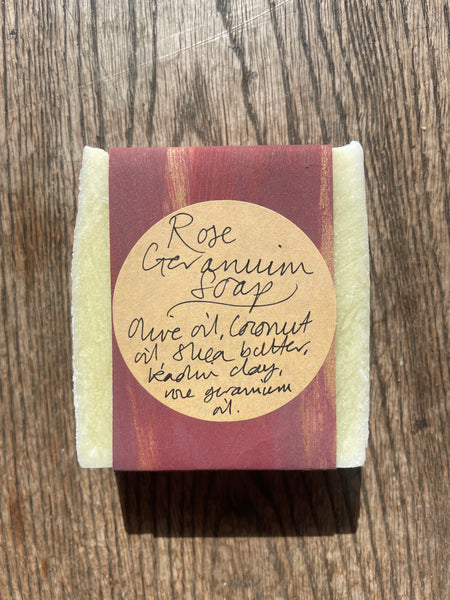 Rose
Geranuim
Soap
Olive oil, Coconut
oil Shea butter,
kaolin clay,
rose geranium
oil.